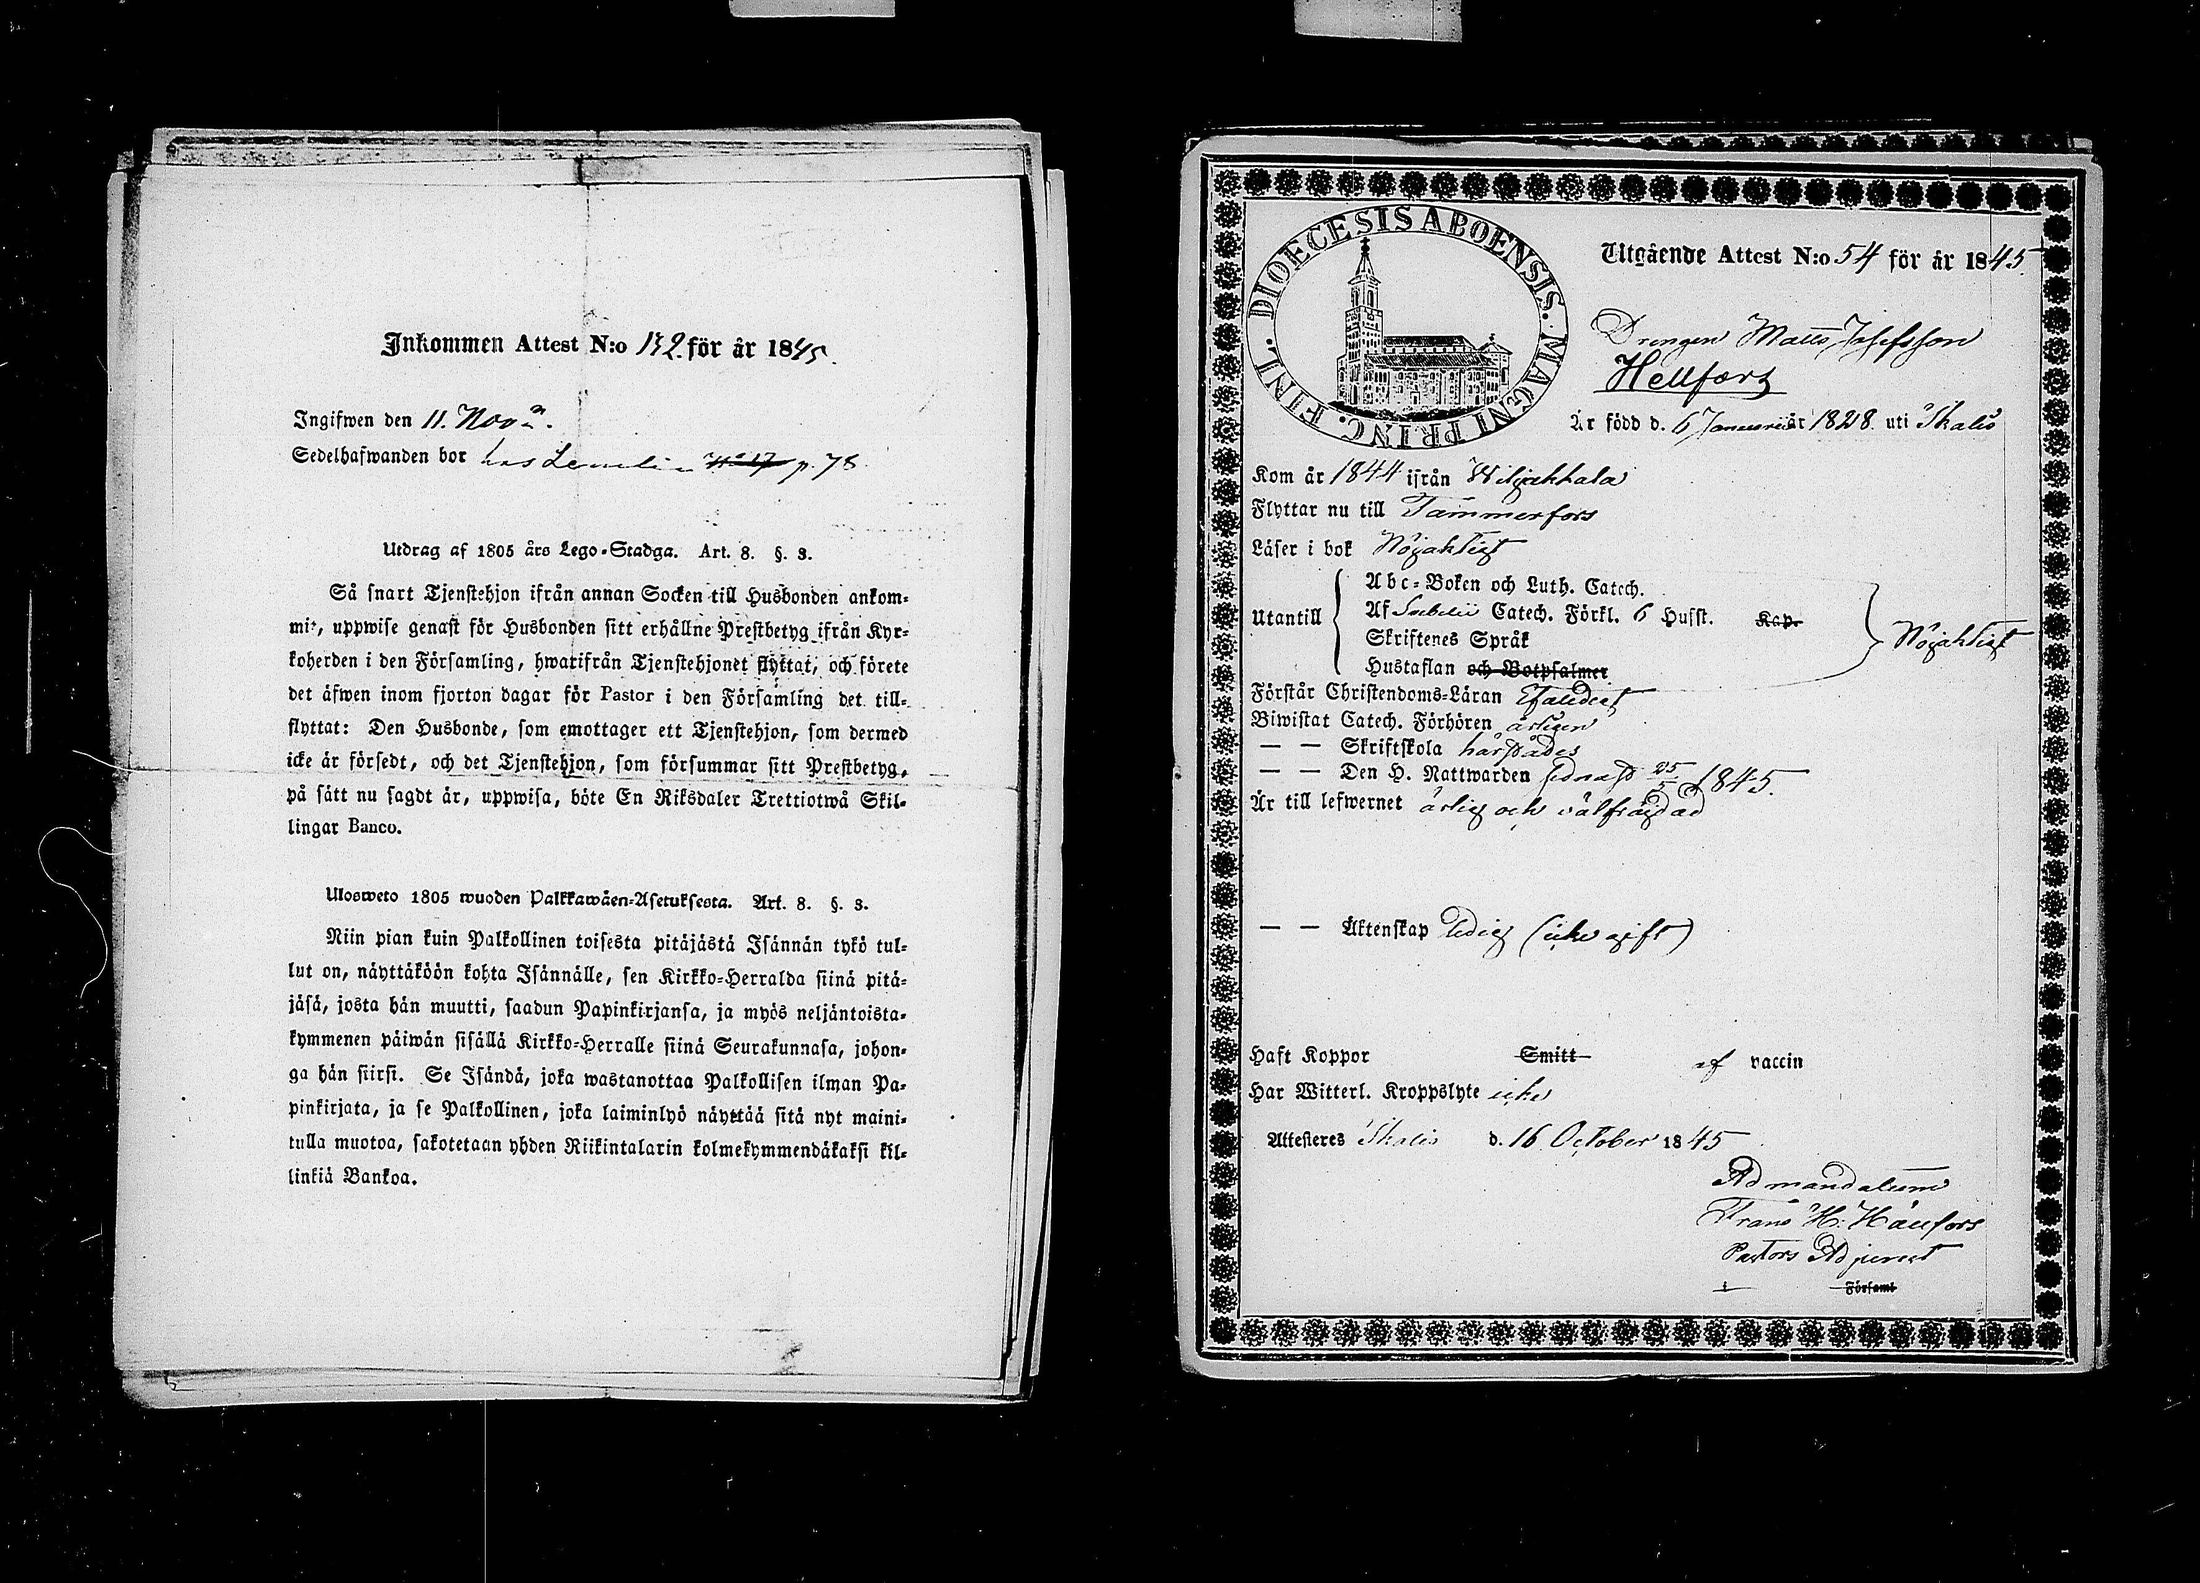 Inkommen Attest N:o 132. för år 1845.
Ingifwen den 11. Nov.
Sedelhafwanden bor hos p. 78
Utdrag af 1805 års Lego-Stadga. Art. 8. §. 3.
Så snart Tjenstehjon ifrån annan Socken till Husbonden ankom-
mit, uppwise genast för Husbonden sitt erhållne Prestbetyg ifrån Kyr-
koherden i den Församling, hwarifrån Tjenstehjonet flyttat, och förete
det äfwen inom fjorton dagar för Pastor i den Församling det till-
flyttat: Den Husbonde, som emottager ett Tjenstehjon, som dermed
icke är försedt, och det Tjenstehjon, som försummar sitt Prestbetyg,
på sätt nu sagdt är, uppwisa, böte En Riksdaler Trettiotwå Skil-
lingar Banco.
Ulosweto 1805 wuoden Palkkawäen-Asetuksesta. Art. 8. §. 3.
Niin pian kuin Palkollinen toisesta pitäjästä Isännän tykö tul-
lut on, näyttäköön kohta Isännälle, sen Kirkko-Herralda siinä pitä-
jäsä, josta hän muutti, saadun Papinkirjansa, ja myös neljäntoista-
kymmenen päiwän sisällä Kirkko-Herralle siinä Seurakunnasa, johon-
ga hän siirsi. Se Isändä, joka wastanottaa Palkollisen ilman Pa-
pinkirjata, ja se Palkollinen, joka laiminlyö näyttää sitä nyt maini-
tulla muotoa, sakotetaan yhden Riikintalarin kolmekymmendäkaksi kil-
linkiä Bankoa.
DIOECESIS ABOENSIS. MAGNI PRINC. FINL.
Utgående Attest N:o 54 för år 1845.
Drengen Matts Josefsson
Hellfors
Är född d. 6 Januarii år 1828 uti Ikalis
Kom år 1844 ifrån Wiljakkala
Flyttar nu till Tammerfors
Läser i bok Nöjaktigt
Abc-Boken och Luth. Catech.
Utantill Af Svebelii Catech. Förkl. 6 Husst. Kap. Nöjaktigt
Skriftenes Språk
Hustaflan och Botpsalmer
Förstår Christendoms-Läran
Biwistat Catech. Förhören årligen
— — Skriftskola härstädes
— — Den H. Nattwarden sednast 25/5 1845.
Är till lefwernet ärlig och välfrägdad
— — Äktenskap ledig (icke gift)
Haft Koppor Smitt af vaccin
Har Witterl. Kroppslyte icke
Attesteres Ikalis d. 16 October 1845
Ad mandatum
Frans H. Hällfors
Pastors Adjunct
i Församl